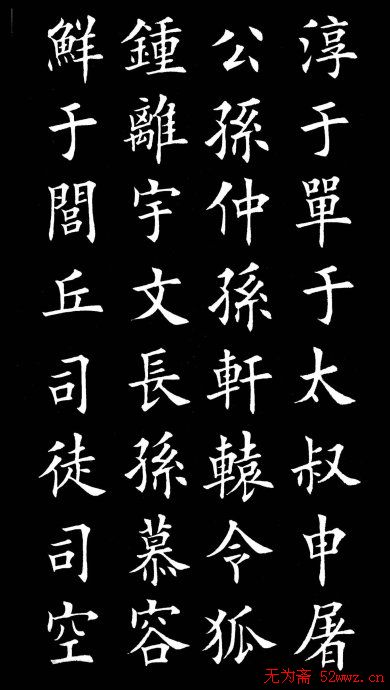 淳于單于太叔申屠
公孫仲孫軒轅令狐
鍾離宇文長孫慕容
鮮于閭丘司徒司空
无为斋 52wwz.cn